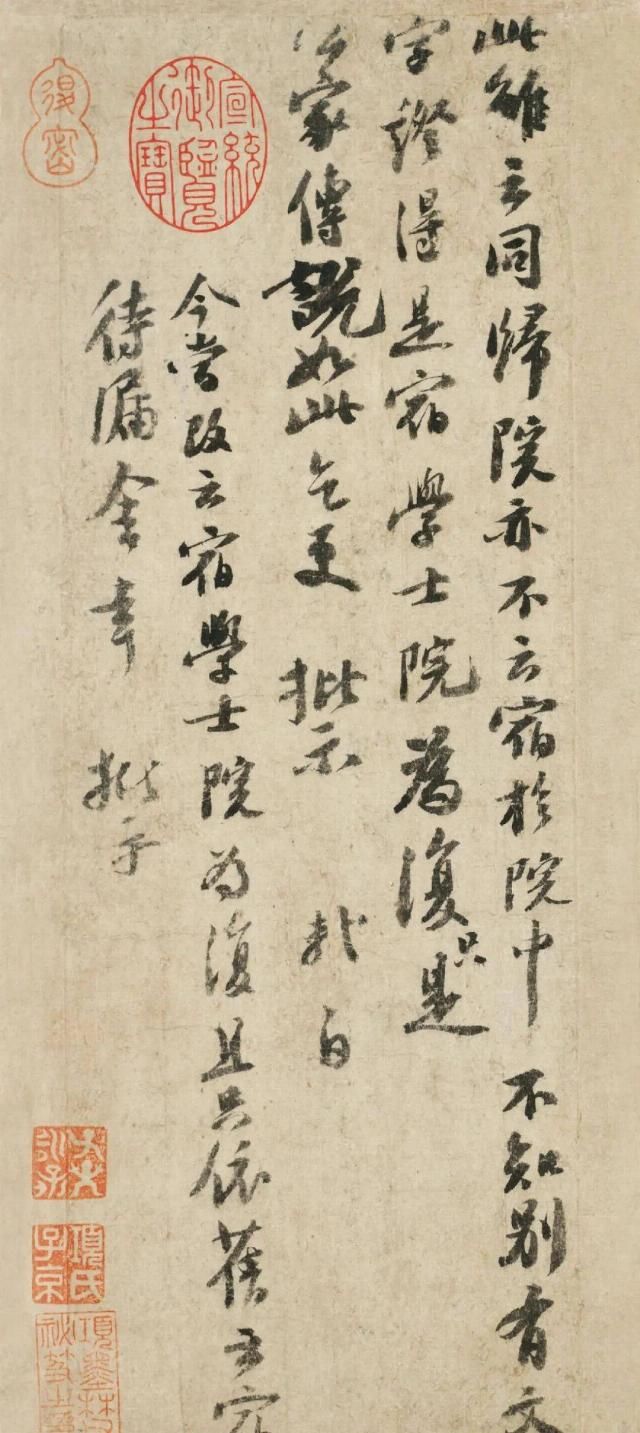 此雖云同歸院亦不云宿於院中 不知別有文
字證得是宿學士院為復只是
家傳說如此乞更 批示  白
今當改云宿學士院為復且只依舊云宿
待漏舍幸 批示
宣統御覽之寶
項氏子京